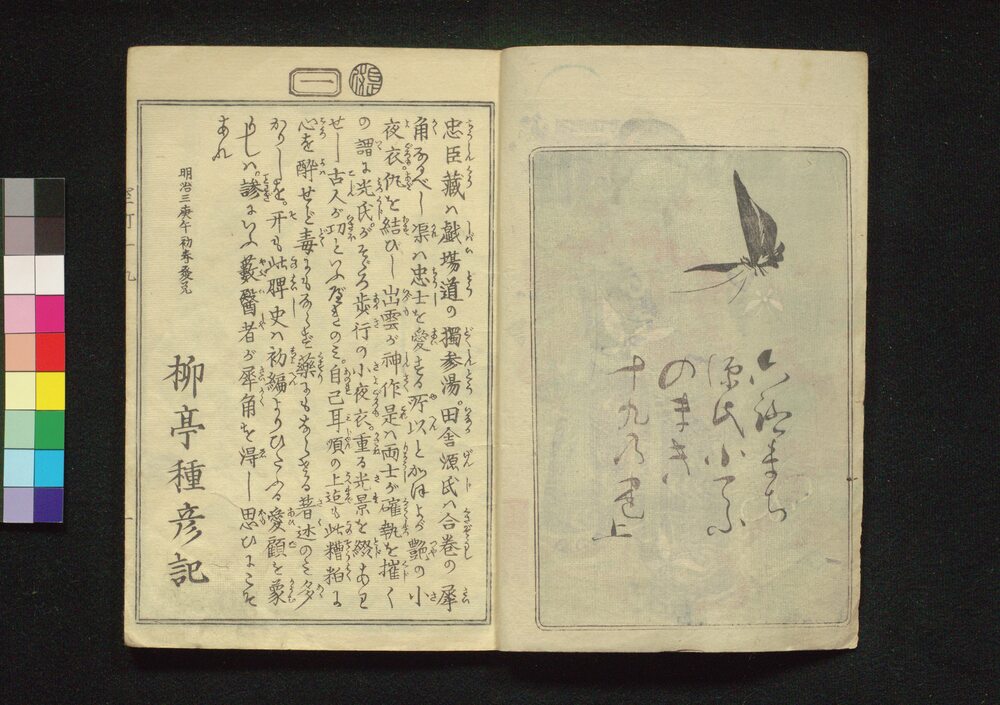 源氏小
のまき
十九乃巻上
一
忠臣藏ハ戯塲道の獨参湯。田舎源氏ハ合巻の犀
角なるべし渠ハ忠士を愛する所以とかほよが艶の小
夜衣。仇を結びし出雲が神作是ハ両士が確執を摧く
の謂に光氏がそゞろ歩行の小夜衣。重る光景を綴なせ
せし古人が功といふべきのミ。自己耳順の上迄も此糟粕に
心を醉せど毒にもあらず藥にもならざる昔述のミ多
かりしを。开も此稗史ハ初編よりひたふる愛顧を蒙
もしハ。諺にいふ藪醫者が犀角を得し思ひにこそ
あれ
明治三庚午初春發兌
柳亭種彦記
室町一九
一